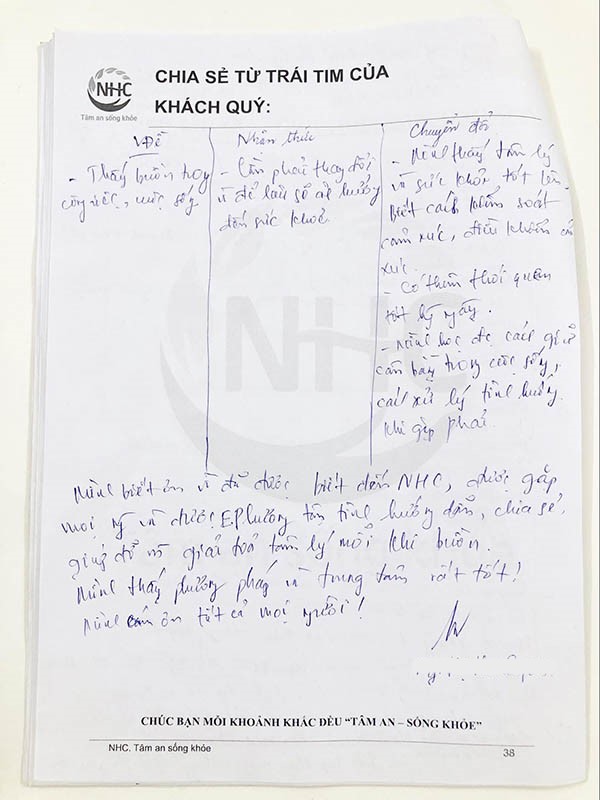 NHC
Tâm an sống khỏe
CHIA SẺ TỪ TRÁI TIM CỦA
KHÁCH QUÝ:
VĐề
- Thấy buồn trong
công việc, cuộc sống
Nhận thức
- Cần phải thay đổi
vì để lâu sẽ ảnh hưởng
đến sức khoẻ
Chuyển đổi
- Mình thấy tâm lý
và sức khoẻ tốt lên.
Biết cách kiểm soát
cảm xúc, điều khiển cảm
xúc.
- Có thêm thói quen
tốt hg ngày.
- Mình học đc cách giữ
cân bằng trong cuộc sống,
cách xử lý tình huống
khi gặp phải.
NHC
Mình biết ơn vì đã được biết đến NHC, được gặp
mọi ng và được E.P.Hương tận tình hướng dẫn, chia sẻ,
giúp đỡ m giải toả tâm lý mỗi khi buồn.
Mình thấy phương pháp và trung tâm rất tốt!
Mình cảm ơn tất cả mọi người!
CHÚC BẠN MỖI KHOẢNH KHẮC ĐỀU “TÂM AN – SỐNG KHỎE”
NHC. Tâm an sống khỏe
38